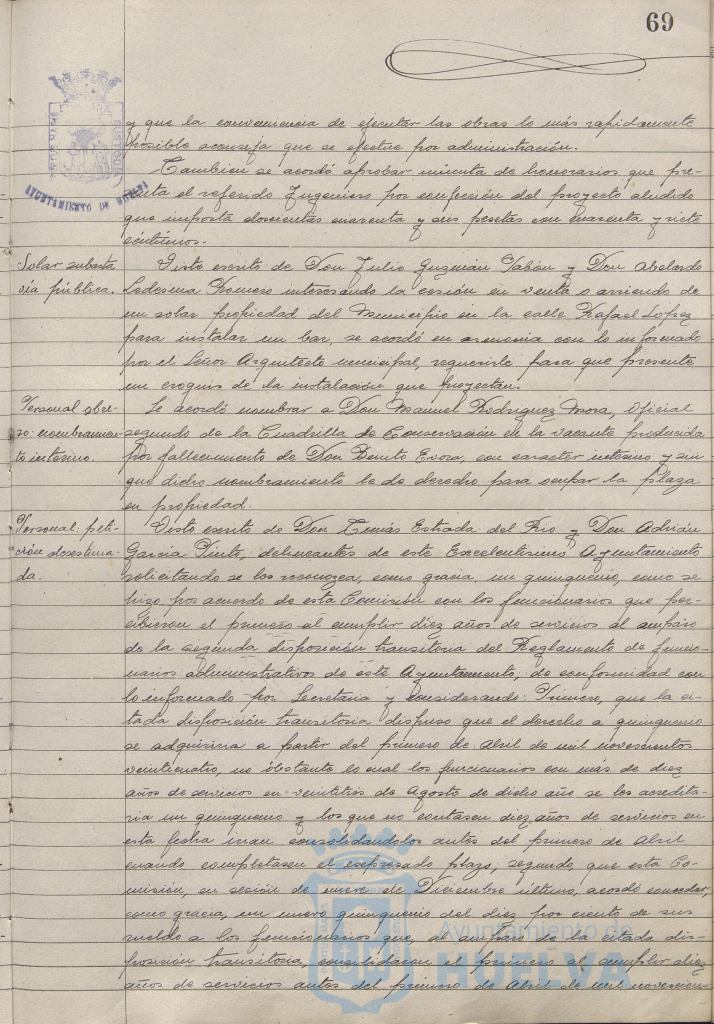 69
AYUNTAMIENTO DE HUELVA
y que la conveniencia de ejecutar las obras lo más rapidamente
posible aconseja que se efectue por administración.
Tambien se acordó aprobar minuta de honorarios que pre-
senta el referido Ingeniero por confección del proyecto aludido
que importa doscientas cuarenta y seis pesetas con cuarenta y siete
céntimos.
Solar subasta
vía pública.
Visto escrito de Don Julio Guzmán Pabón y Don Abelardo
Ledesma Romero interesando la cesión en venta o arriendo de
un solar propiedad del Municipio en la calle Rafael Lopez
para instalar un bar, se acordó en armonia con lo informado
por el Señor Arquitecto municipal, requerirle para que presente
un croquis de la instalación que proyectan.
Personal obre-
ro: nombramien-
to interino.
Se acordó nombrar a Don Manuel Rodriguez Mora, Oficial
segundo de la Cuadrilla de Conservación en la vacante producida
por fallecimiento de Don Benito Evora, con caracter interino y sin
que dicho nombramiento le de derecho para ocupar la plaza
en propiedad.
Personal: peti-
ción desestima-
da.
Visto escrito de Don Tomás Estrada del Rio y Don Adrián
Garcia Pinto, delineantes de este Excelentisimo Ayuntamiento
solicitando se les reconozca, como gracia, un quinquenio, como se
hizo por acuerdo de esta Comisión con los funcionarios que per-
cibieron el primero al cumplir diez años de servicios al amparo
de la segunda disposición transitoria del Reglamento de funcio-
narios administrativos de este Ayuntamiento; de conformidad con
lo informado por Secretaria y considerando: Primero, que la ci-
tada disposición transitoria dispuso que el derecho a quinquenio
se adquiriria a partir del primero de Abril de mil novecientos
veinticuatro, no obstante lo cual los funcionarios con más de diez
años de servicios en veintitrés de Agosto de dicho año se les acredita-
ria un quinquenio y los que no contasen diez años de servicios en
esta fecha irian consolidandolos antes del primero de Abril
cuando completasen el expresado plazo, segundo, que esta Co-
misión, en sesión de nueve de Diciembre último, acordó conceder,
como gracia, un nuevo quinquenio del diez por ciento de sus
sueldo a los funcionarios que, al amparo de la citada dis-
posición transitoria, consolidaron el primero al cumplir diez
años de servicios antes del primero de Abril de mil novecien-
Ayuntamiento de
HUELVA